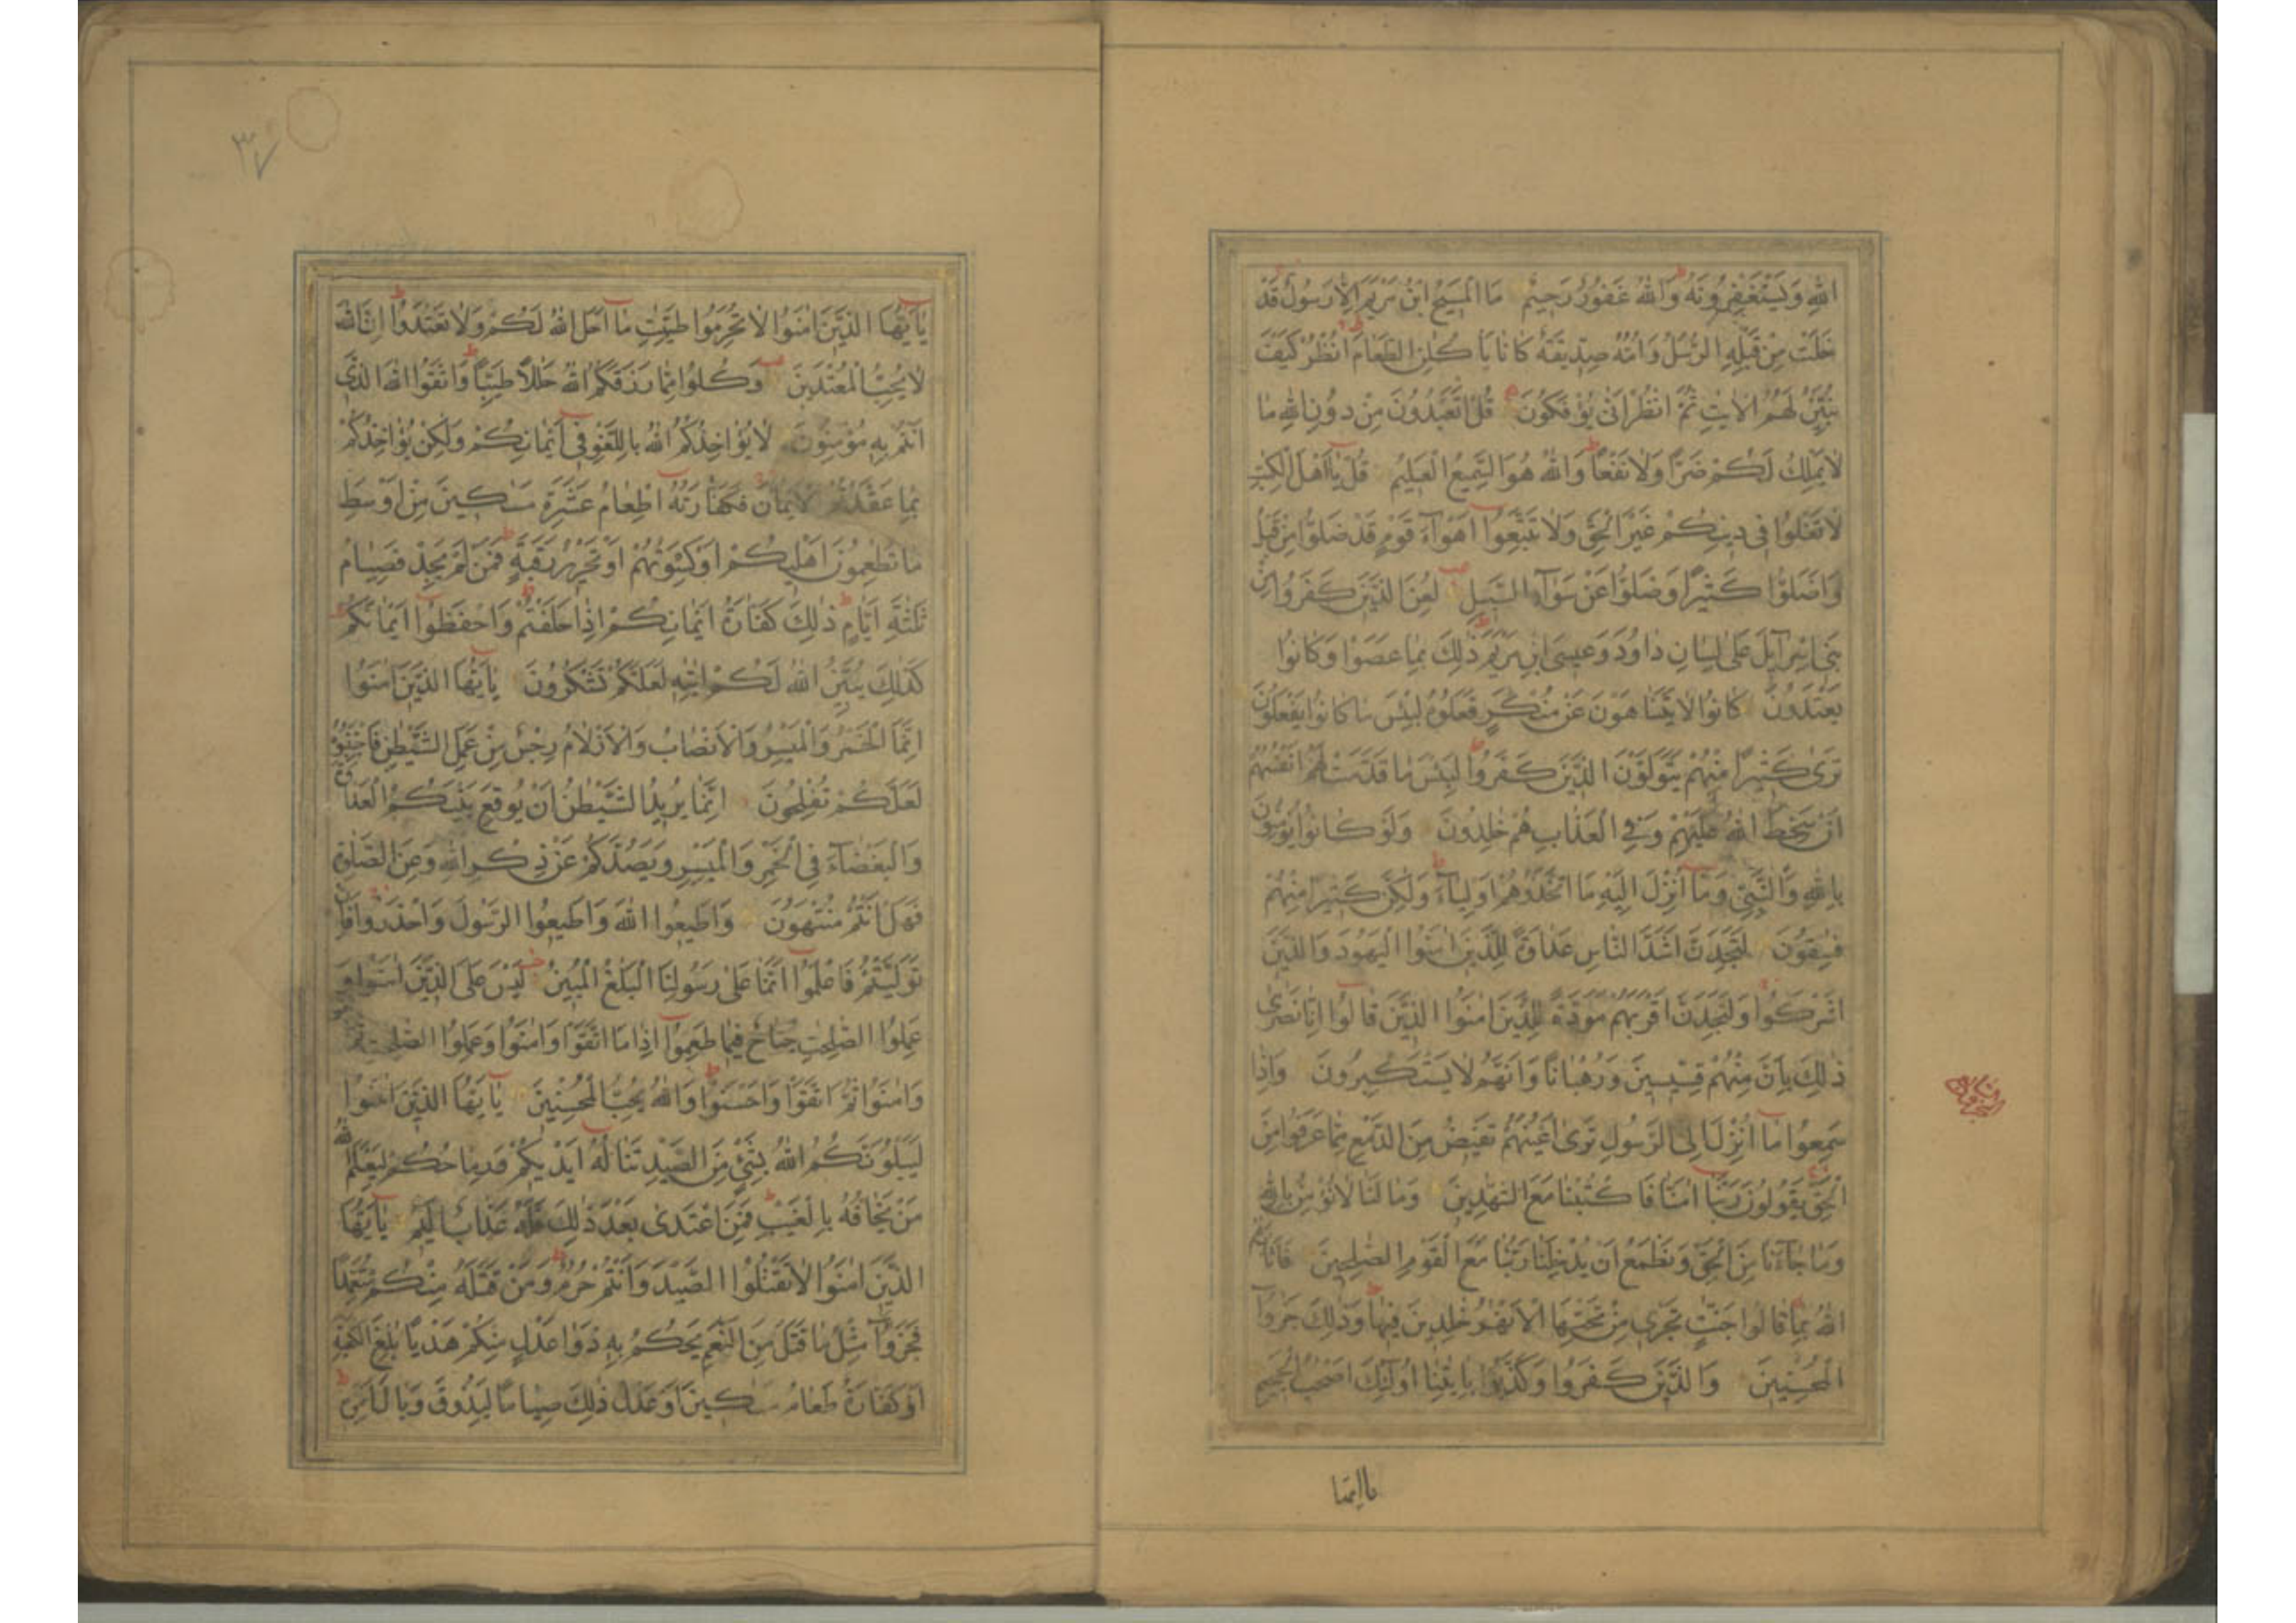 اللهِ وَيَسْتَغْفِرُونَهُ وَاللهُ غَفُورٌ رَحِيمٌ مَا الْمَسِيحُ ابْنُ مَرْيَمَ إِلَّا رَسُولٌ قَدْ
خَلَتْ مِنْ قَبْلِهِ الرُّسُلُ وَأُمُّهُ صِدِّيقَةٌ كَانَا يَأْكُلَانِ الطَّعَامَ انْظُرْ كَيْفَ
نُبَيِّنُ لَهُمُ الْآيٰتِ ثُمَّ انْظُرْ أَنّٰى يُؤْفَكُونَ قُلْ أَتَعْبُدُونَ مِنْ دُونِ اللهِ مَا
لَا يَمْلِكُ لَكُمْ ضَرًّا وَلَا نَفْعًا وَاللهُ هُوَ السَّمِيعُ الْعَلِيمُ قُلْ يَا أَهْلَ الْكِتٰبِ
لَا تَغْلُوا فِي دِينِكُمْ غَيْرَ الْحَقِّ وَلَا تَتَّبِعُوا أَهْوَآءَ قَوْمٍ قَدْ ضَلُّوا مِنْ قَبْلُ
وَأَضَلُّوا كَثِيرًا وَضَلُّوا عَنْ سَوَآءِ السَّبِيلِ لُعِنَ الَّذِينَ كَفَرُوا مِنْ
بَنِي إِسْرَآئِيلَ عَلَى لِسَانِ دَاوُدَ وَعِيسَى ابْنِ مَرْيَمَ ذٰلِكَ بِمَا عَصَوْا وَكَانُوا
يَعْتَدُونَ كَانُوا لَا يَتَنَاهَوْنَ عَنْ مُنْكَرٍ فَعَلُوهُ لَبِئْسَ مَا كَانُوا يَفْعَلُونَ
تَرَى كَثِيرًا مِنْهُمْ يَتَوَلَّوْنَ الَّذِينَ كَفَرُوا لَبِئْسَ مَا قَدَّمَتْ لَهُمْ أَنْفُسُهُمْ
أَنْ سَخِطَ اللهُ عَلَيْهِمْ وَفِي الْعَذَابِ هُمْ خٰلِدُونَ وَلَوْ كَانُوا يُؤْمِنُونَ
بِاللهِ وَالنَّبِيِّ وَمَا أُنْزِلَ إِلَيْهِ مَا اتَّخَذُوهُمْ أَوْلِيَآءَ وَلٰكِنَّ كَثِيرًا مِنْهُمْ
فٰسِقُونَ لَتَجِدَنَّ أَشَدَّ النَّاسِ عَدَاوَةً لِلَّذِينَ اٰمَنُوا الْيَهُودَ وَالَّذِينَ
أَشْرَكُوا وَلَتَجِدَنَّ أَقْرَبَهُمْ مَوَدَّةً لِلَّذِينَ اٰمَنُوا الَّذِينَ قَالُوا إِنَّا نَصٰرٰى
ذٰلِكَ بِأَنَّ مِنْهُمْ قِسِّيسِينَ وَرُهْبَانًا وَأَنَّهُمْ لَا يَسْتَكْبِرُونَ وَإِذَا
سَمِعُوا مَا أُنْزِلَ إِلَى الرَّسُولِ تَرَى أَعْيُنَهُمْ تَفِيضُ مِنَ الدَّمْعِ مِمَّا عَرَفُوا مِنَ
الْحَقِّ يَقُولُونَ رَبَّنَا اٰمَنَّا فَاكْتُبْنَا مَعَ الشّٰهِدِينَ وَمَا لَنَا لَا نُؤْمِنُ بِاللهِ
وَمَا جَآءَنَا مِنَ الْحَقِّ وَنَطْمَعُ أَنْ يُدْخِلَنَا رَبُّنَا مَعَ الْقَوْمِ الصّٰلِحِينَ فَأَثَابَهُمُ
اللهُ بِمَا قَالُوا جَنّٰتٍ تَجْرِي مِنْ تَحْتِهَا الْأَنْهٰرُ خٰلِدِينَ فِيهَا وَذٰلِكَ جَزَآءُ
الْمُحْسِنِينَ وَالَّذِينَ كَفَرُوا وَكَذَّبُوا بِاٰيٰتِنَا أُولٰئِكَ أَصْحٰبُ الْجَحِيمِ
٣٧
يٰأَيُّهَا الَّذِينَ اٰمَنُوا لَا تُحَرِّمُوا طَيِّبٰتِ مَا أَحَلَّ اللهُ لَكُمْ وَلَا تَعْتَدُوا إِنَّ اللهَ
لَا يُحِبُّ الْمُعْتَدِينَ وَكُلُوا مِمَّا رَزَقَكُمُ اللهُ حَلٰلًا طَيِّبًا وَاتَّقُوا اللهَ الَّذِي
أَنْتُمْ بِهِ مُؤْمِنُونَ لَا يُؤَاخِذُكُمُ اللهُ بِاللَّغْوِ فِي أَيْمَانِكُمْ وَلٰكِنْ يُؤَاخِذُكُمْ
بِمَا عَقَّدْتُمُ الْأَيْمَانَ فَكَفَّارَتُهُ إِطْعَامُ عَشَرَةِ مَسَاكِينَ مِنْ أَوْسَطِ
مَا تُطْعِمُونَ أَهْلِيكُمْ أَوْ كِسْوَتُهُمْ أَوْ تَحْرِيرُ رَقَبَةٍ فَمَنْ لَمْ يَجِدْ فَصِيَامُ
ثَلٰثَةِ أَيَّامٍ ذٰلِكَ كَفَّارَةُ أَيْمَانِكُمْ إِذَا حَلَفْتُمْ وَاحْفَظُوا أَيْمَانَكُمْ
كَذٰلِكَ يُبَيِّنُ اللهُ لَكُمْ اٰيٰتِهِ لَعَلَّكُمْ تَشْكُرُونَ يٰأَيُّهَا الَّذِينَ اٰمَنُوا
إِنَّمَا الْخَمْرُ وَالْمَيْسِرُ وَالْأَنْصَابُ وَالْأَزْلَامُ رِجْسٌ مِنْ عَمَلِ الشَّيْطٰنِ فَاجْتَنِبُوهُ
لَعَلَّكُمْ تُفْلِحُونَ إِنَّمَا يُرِيدُ الشَّيْطٰنُ أَنْ يُوقِعَ بَيْنَكُمُ الْعَدَاوَةَ
وَالْبَغْضَآءَ فِي الْخَمْرِ وَالْمَيْسِرِ وَيَصُدَّكُمْ عَنْ ذِكْرِ اللهِ وَعَنِ الصَّلٰوةِ
فَهَلْ أَنْتُمْ مُنْتَهُونَ وَأَطِيعُوا اللهَ وَأَطِيعُوا الرَّسُولَ وَاحْذَرُوا فَإِنْ
تَوَلَّيْتُمْ فَاعْلَمُوا أَنَّمَا عَلَى رَسُولِنَا الْبَلٰغُ الْمُبِينُ لَيْسَ عَلَى الَّذِينَ اٰمَنُوا وَ
عَمِلُوا الصّٰلِحٰتِ جُنَاحٌ فِيمَا طَعِمُوا إِذَا مَا اتَّقَوْا وَاٰمَنُوا وَعَمِلُوا الصّٰلِحٰتِ ثُمَّ
وَاٰمَنُوا ثُمَّ اتَّقَوْا وَأَحْسَنُوا وَاللهُ يُحِبُّ الْمُحْسِنِينَ يٰأَيُّهَا الَّذِينَ اٰمَنُوا
لَيَبْلُوَنَّكُمُ اللهُ بِشَيْءٍ مِنَ الصَّيْدِ تَنَالُهُ أَيْدِيكُمْ وَرِمَاحُكُمْ لِيَعْلَمَ اللهُ
مَنْ يَخَافُهُ بِالْغَيْبِ فَمَنِ اعْتَدَى بَعْدَ ذٰلِكَ فَلَهُ عَذَابٌ أَلِيمٌ يٰأَيُّهَا
الَّذِينَ اٰمَنُوا لَا تَقْتُلُوا الصَّيْدَ وَأَنْتُمْ حُرُمٌ وَمَنْ قَتَلَهُ مِنْكُمْ مُتَعَمِّدًا
فَجَزَآءٌ مِثْلُ مَا قَتَلَ مِنَ النَّعَمِ يَحْكُمُ بِهِ ذَوَا عَدْلٍ مِنْكُمْ هَدْيًا بٰلِغَ الْكَعْبَةِ
أَوْ كَفَّارَةٌ طَعَامُ مَسَاكِينَ أَوْ عَدْلُ ذٰلِكَ صِيَامًا لِيَذُوقَ وَبَالَ أَمْرِهِ